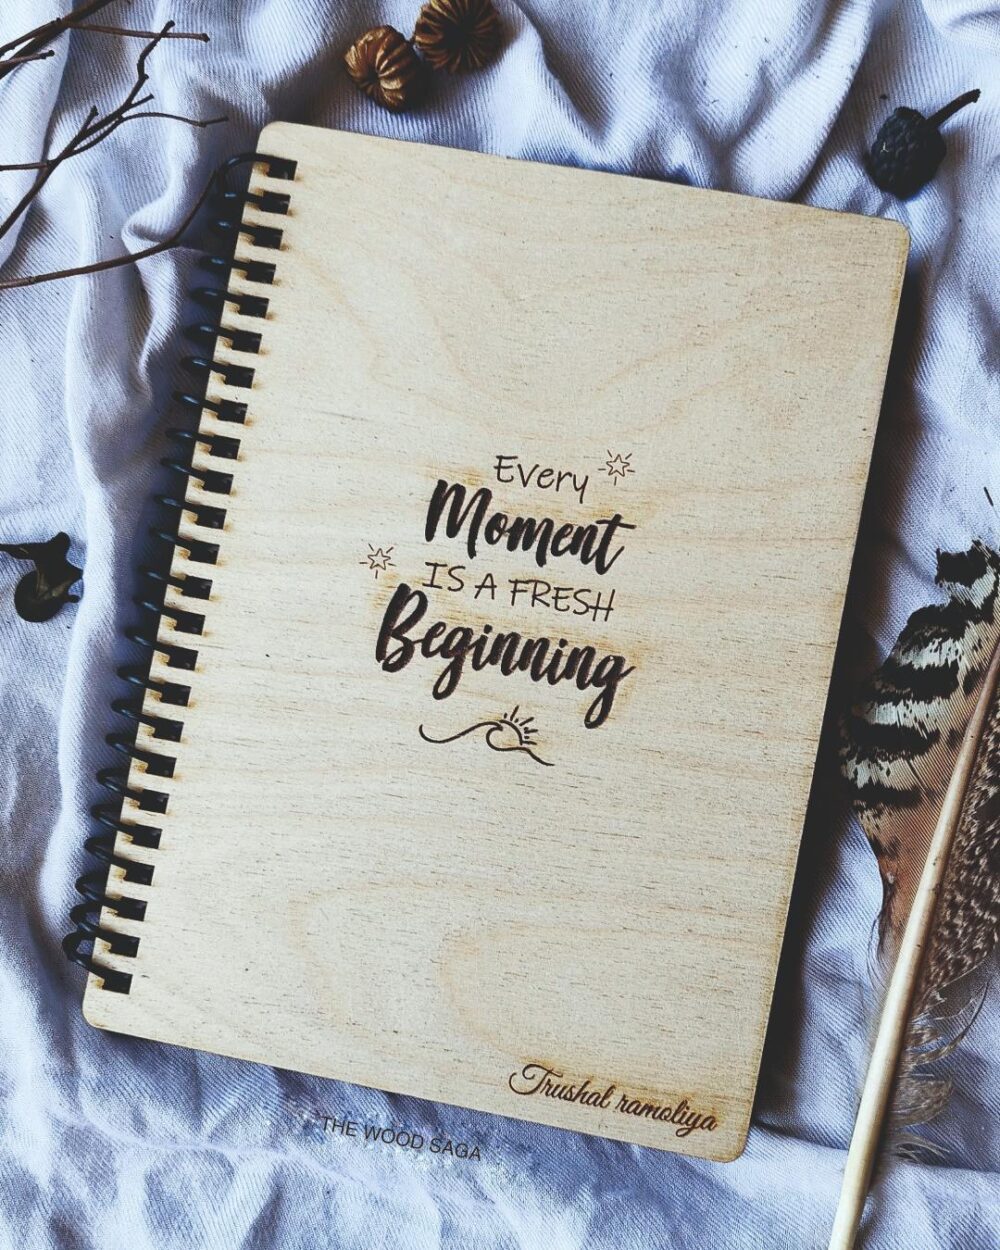 Every
Moment
IS A FRESH
Beginning
Trushal ramoliya
THE WOOD SAGA